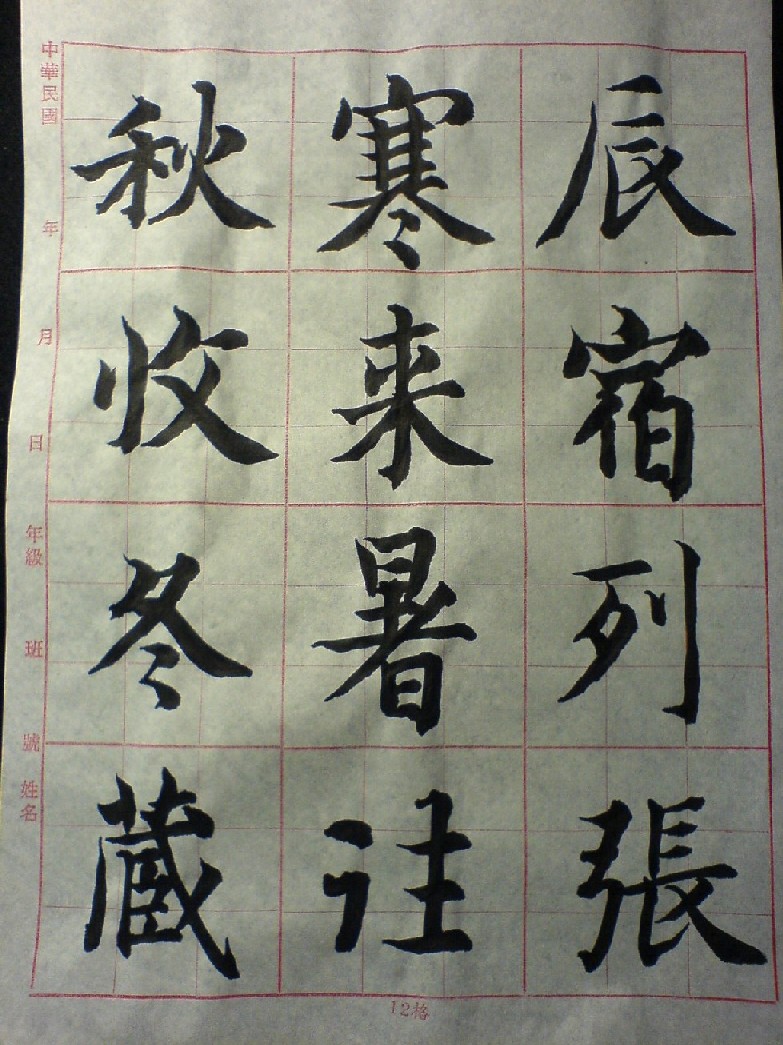 辰宿列張
寒来暑往
秋收冬蔵
中華民國 年 月 日 年級 班 號 姓名
12格